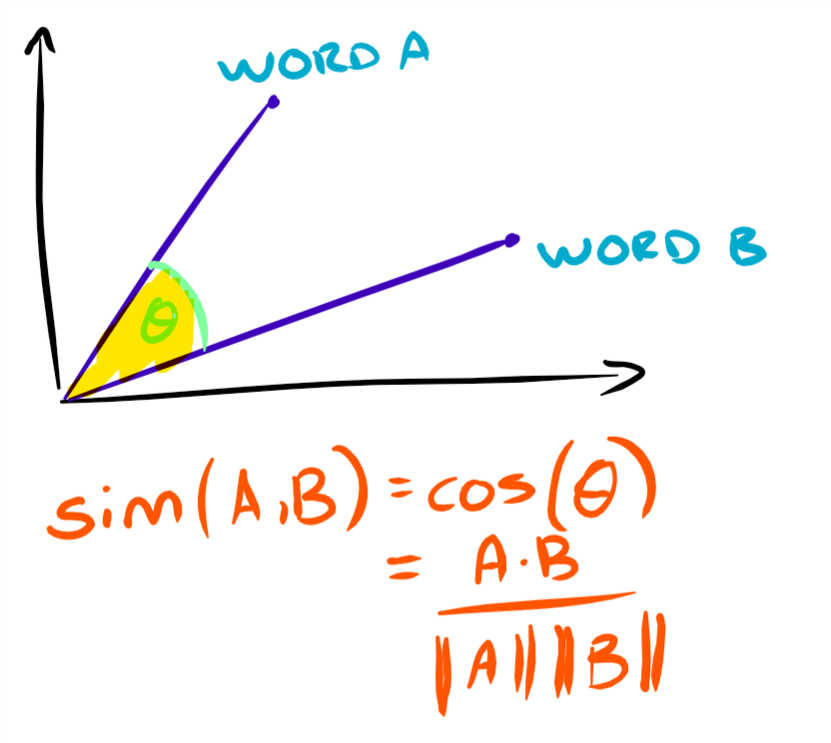 WORD A
WORD B
θ
sim(A,B) = cos(θ)
= A·B
‖A‖‖B‖